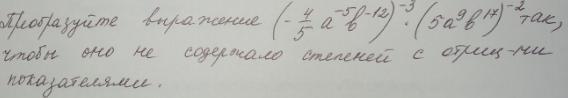 Преобразуйте выражение (-4/5 a⁻⁵b⁻¹²)⁻³ · (5a⁹b¹⁷)⁻² так,
чтобы оно не содержало степеней с отриц-ми
показателями.